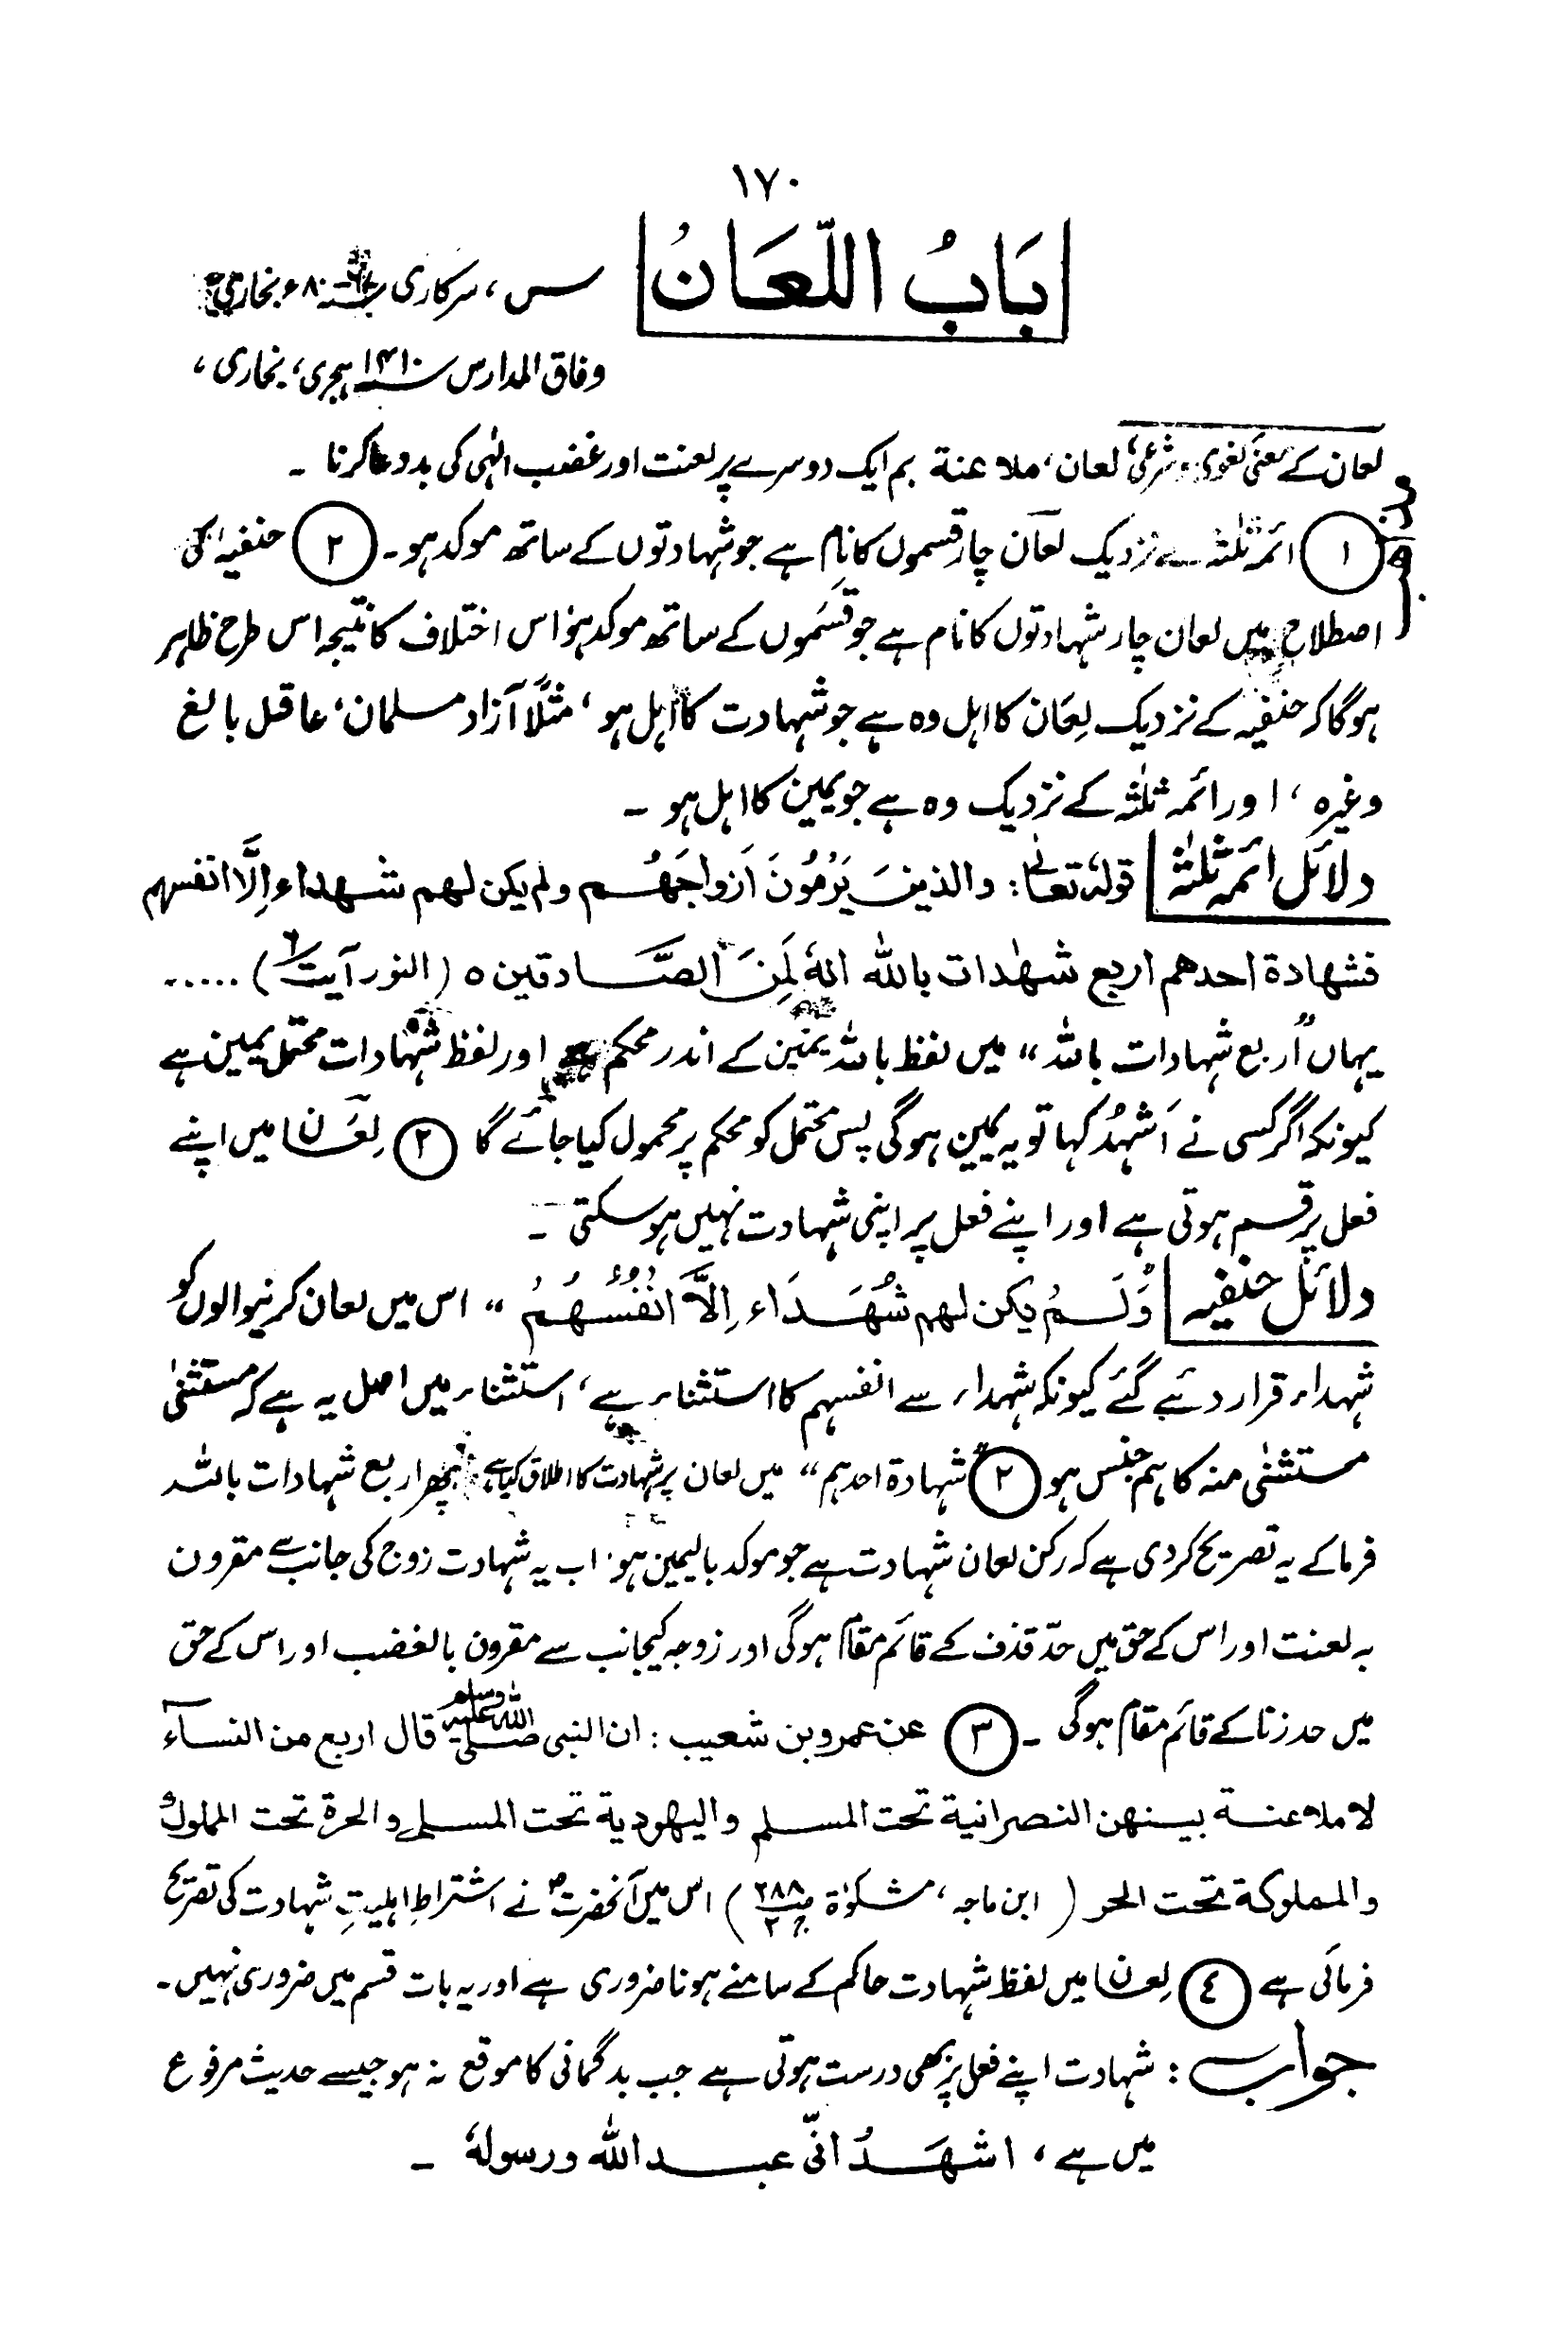 ١٧٠
بَابُ اللّعَانُ
س، سرکاری ٨٠ء بخاری
وفاق المدارس ١٤١٠ ہجری، بخاری،
لعان کے معنی لغوی و شرعی لعان، ملاعنة بم ایک دوسرے پر لعنت اور غضب الٰہی کی بددعا کرنا ۔
١ ائمہ ثلٰثہ کے نزدیک لعان چار قسموں کا نام ہے جو شہادتوں کے ساتھ موکد ہو۔ ٢ حنفیہ کی
اصطلاح میں لعان چار شہادتوں کا نام ہے جو قسموں کے ساتھ موکد ہو اس اختلاف کا نتیجہ اس طرح ظاہر
ہوگا کہ حنفیہ کے نزدیک لِعَان کا اہل وہ ہے جو شہادت کا اہل ہو، مثلًا آزاد مسلمان، عاقل بالغ
وغیرہ، اور ائمہ ثلٰثہ کے نزدیک وہ ہے جو یمین کا اہل ہو ۔
دلائل ائمہ ثلٰثہ قولہٗ تعالٰے : والذینَ یَرْمُونَ اَزواجَھُم ولم یکن لھم شھداء اِلَّا انفسھم
فشھادة احدھم اربع شھٰدات باللّٰه انهٗ لَمِنَ الصَّادقین ٥ (النور آیت ٦) .....
یہاں "اربع شہادات باللہ" میں لفظ باللہ یمین کے اندر محکم ہے اور لفظ شہادات محتمل یمین ہے
کیونکہ اگر کسی نے اَشہدُ کہا تو یہ یمین ہوگی پس محتمل کو محکم پر محمول کیا جائے گا ٢ لِعَان میں اپنے
فعل پر قسم ہوتی ہے اور اپنے فعل پر اپنی شہادت نہیں ہوسکتی ۔
دلائل حنفیہ "وَلَمْ یکن لھم شُھَدَاء اِلَّا اَنْفُسُھُمْ" اس میں لعان کرنیوالوں کو
شہداء قرار دئیے گئے کیونکہ شہداء سے انفسہم کا استثناء ہے، استثناء میں اصل یہ ہے کہ مستثنٰی
مستثنٰی منہ کا ہم جنس ہو ٢ "شہادة احدہم" میں لعان پر شہادت کا اطلاق کیا ہے، پھر اربع شہادات باللہ
فرماکے یہ تصریح کردی ہے کہ رکن لعان شہادت ہے جو موکد بالیمین ہو، اب یہ شہادت زوج کی جانب سے مقرون
بہ لعنت اور اس کے حق میں حدّ قذف کے قائم مقام ہوگی اور زوجہ کیجانب سے مقرون بالغضب اور اس کے حق
میں حد زنا کے قائم مقام ہوگی ۔ ٣ عن عمرو بن شعیب : ان النبی صلی اللہ علیہ وسلم قال اربع من النساء
لا ملاعنة بینھن النصرانیة تحت المسلم والیھودیة تحت المسلم والحرة تحت المملوك
والمملوکة تحت الحر (ابن ماجہ، مشکوٰة ص ٢٨٨ ج ٢) اس میں آنحضرتؐ نے اشتراطِ اہلیتِ شہادت کی تصریح
فرمائی ہے ٤ لِعان میں لفظ شہادت حاکم کے سامنے ہونا ضروری ہے اور یہ بات قسم میں ضروری نہیں ۔
جواب : شہادت اپنے فعل پر بھی درست ہوتی ہے جب بدگمانی کا موقع نہ ہو جیسے حدیث مرفوع
میں ہے، اشھَدُ انّی عبد اللّٰه ورسولهٗ ۔